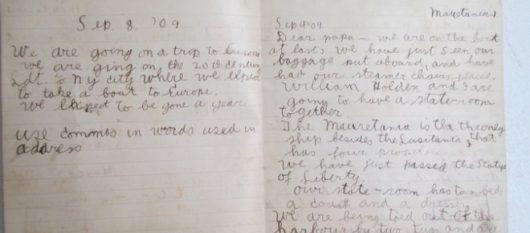 Sep. 8. '09
We are going on a trip to Europe
we are ging on the 20th century
Ldt. to NY city where we expect
to take a boat to Europe.
We expect to be gone a year.
use commas in words used in
address
Mauretania
Sep 9 '09
Dear papa – we are on the boat
at last, we have just seen our
baggage put aboard, and have
had our steamer chairs
William Holden and I are
going to have a state-room
together.
The Mauretania is the only
ship besides the Lusitania, that
has four
We have just passed the Statue
of Liberty
our state-room has two bed
a couch and a
We are being toed out of the
harbour by two tugs and